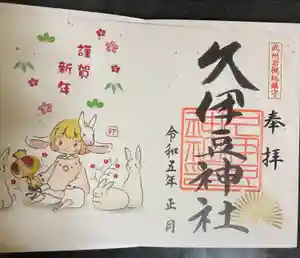 武州岩槻総鎮守
奉拝
久伊豆神社
令和五年 正月
謹賀
新年
卯